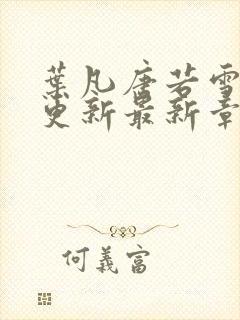 葉凡唐若雪
更新最新章
何義富